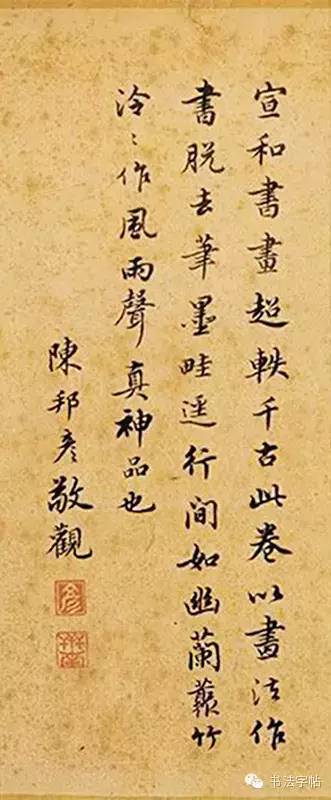 宣和書畫超軼千古此卷以畫法作
書脫去筆墨畦逕行間如幽蘭叢竹
泠〻作風雨聲真神品也
陳邦彥敬觀
書法字帖